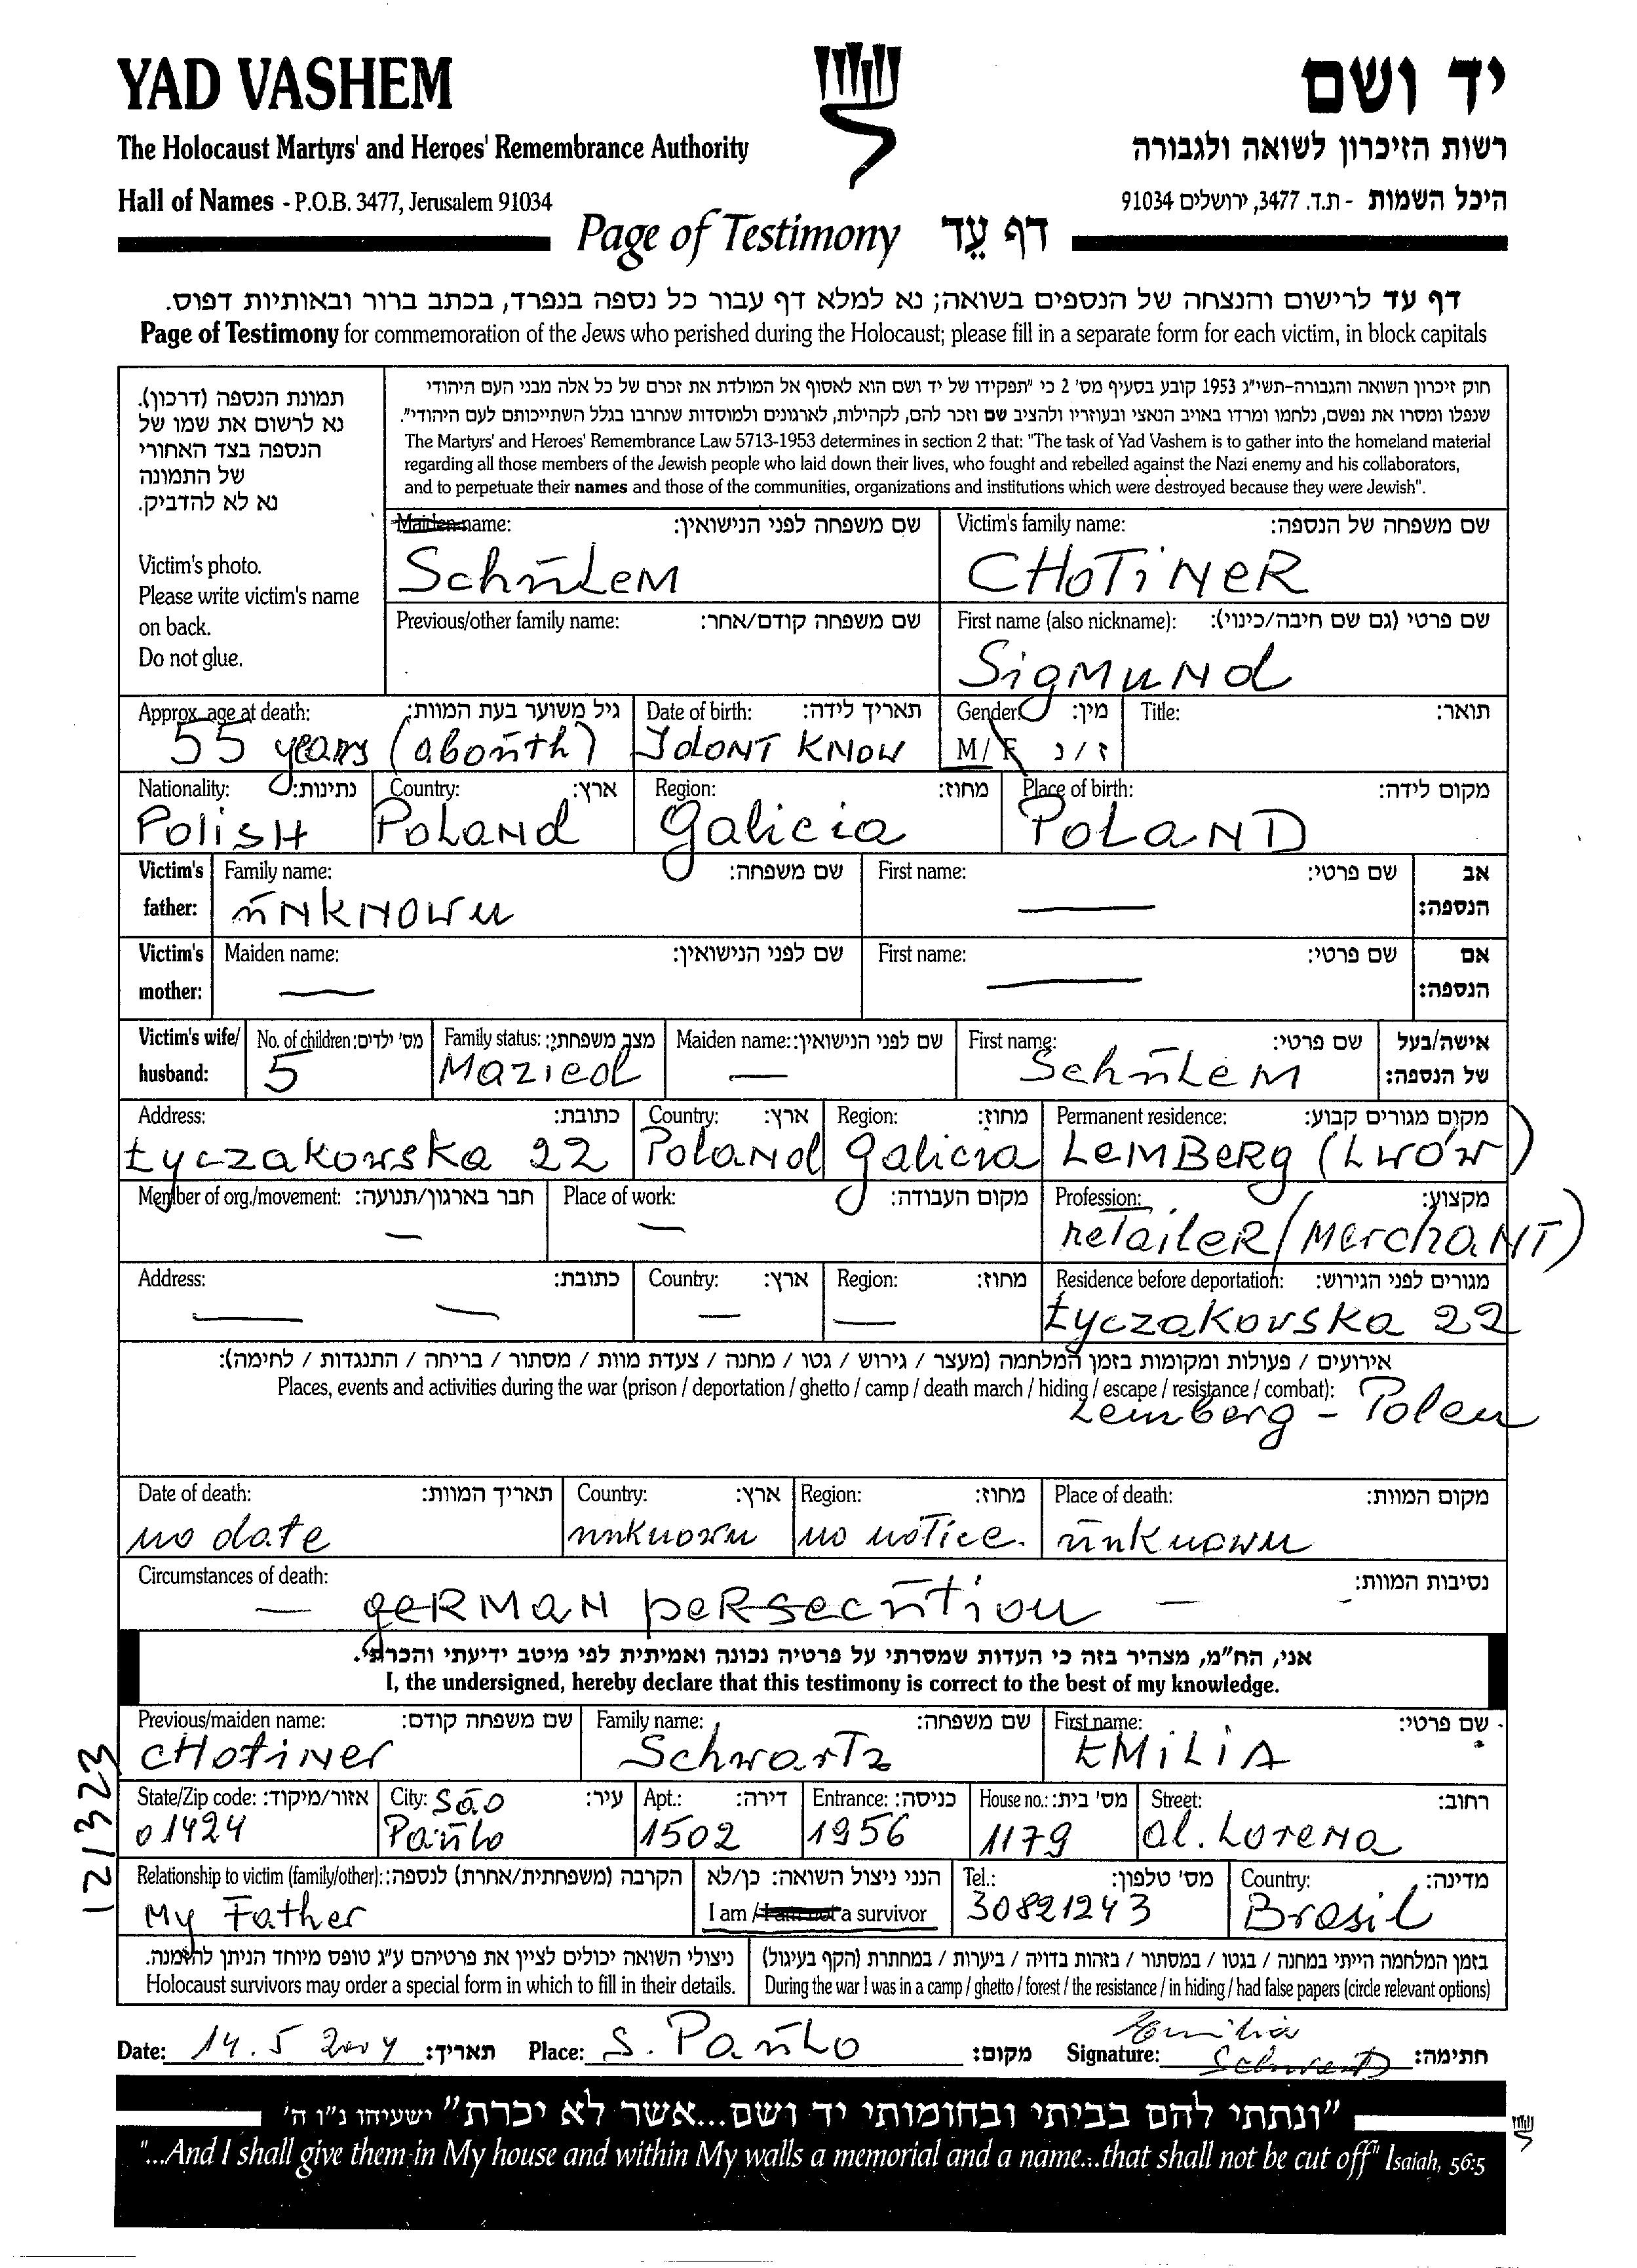 YAD VASHEM
יד ושם
The Holocaust Martyrs' and Heroes' Remembrance Authority
רשות הזיכרון לשואה ולגבורה
Hall of Names - P.O.B. 3477, Jerusalem 91034
היכל השמות - ת.ד. 3477, ירושלים 91034
Page of Testimony דף עֵד
דף עד לרישום והנצחה של הנספים בשואה; נא למלא דף עבור כל נספה בנפרד, בכתב ברור ובאותיות דפוס.
Page of Testimony for commemoration of the Jews who perished during the Holocaust; please fill in a separate form for each victim, in block capitals
תמונת הנספה (דרכון).
נא לרשום את שמו של
הנספה בצד האחורי
של התמונה
נא לא להדביק.
Victim's photo.
Please write victim's name
on back.
Do not glue.
חוק זיכרון השואה והגבורה-תשי"ג 1953 קובע בסעיף מס' 2 כי "תפקידו של יד ושם הוא לאסוף אל המולדת את זכרם של כל אלה מבני העם היהודי
שנפלו ומסרו את נפשם, נלחמו ומרדו באויב הנאצי ובעוזריו ולהציב שם וזכר להם, לקהילות, לארגונים ולמוסדות שנחרבו בגלל השתייכותם לעם היהודי".
The Martyrs' and Heroes' Remembrance Law 5713-1953 determines in section 2 that: "The task of Yad Vashem is to gather into the homeland material
regarding all those members of the Jewish people who laid down their lives, who fought and rebelled against the Nazi enemy and his collaborators,
and to perpetuate their names and those of the communities, organizations and institutions which were destroyed because they were Jewish".
Maiden name: שם משפחה לפני הנישואין: Victim's family name: שם משפחה של הנספה:
Schūlem CHOTiNeR
Previous/other family name: שם משפחה קודם/אחר: First name (also nickname): שם פרטי (גם שם חיבה/כינוי):
SigMuNd
Approx. age at death: גיל משוער בעת המוות: Date of birth: תאריך לידה: Gender: מין: Title: תואר:
55 years (aboūth) I doNT KNOW M/F ז/נ
Nationality: נתינות: Country: ארץ: Region: מחוז: Place of birth: מקום לידה:
PoliSH PolaNd galicia PoLaND
Victim's father: Family name: שם משפחה: First name: שם פרטי: אב הנספה:
ūNKNOWN —
Victim's mother: Maiden name: שם לפני הנישואין: First name: שם פרטי: אם הנספה:
— —
Victim's wife/ husband: No. of children: מס' ילדים: Family status: מצב משפחתי: Maiden name: שם לפני הנישואין: First name: שם פרטי: אישה/בעל של הנספה:
5 Maried — Schūlem
Address: כתובת: Country: ארץ: Region: מחוז: Permanent residence: מקום מגורים קבוע:
Łyczakowska 22 PolaNd galicia LeMBeRg (LWÓW)
Member of org./movement: חבר בארגון/תנועה: Place of work: מקום העבודה: Profession: מקצוע:
— — ReTaileR/(MerchaNT)
Address: כתובת: Country: ארץ: Region: מחוז: Residence before deportation: מגורים לפני הגירוש:
— — — — Łyczakowska 22
אירועים / פעולות ומקומות בזמן המלחמה (מעצר / גירוש / גטו / מחנה / צעדת מוות / מסתור / בריחה / התנגדות / לחימה):
Places, events and activities during the war (prison / deportation / ghetto / camp / death march / hiding / escape / resistance / combat):
Lemberg - Polen
Date of death: תאריך המוות: Country: ארץ: Region: מחוז: Place of death: מקום המוות:
no date unknown no notice. ūnknown
Circumstances of death: נסיבות המוות:
— geRMaN peRsecūtion —
אני, הח"מ, מצהיר בזה כי העדות שמסרתי על פרטיה נכונה ואמיתית לפי מיטב ידיעתי והכרתי.
I, the undersigned, hereby declare that this testimony is correct to the best of my knowledge.
Previous/maiden name: שם משפחה קודם: Family name: שם משפחה: First name: שם פרטי:
CHotiNer SchwarTz EMiLiA
State/Zip code: אזור/מיקוד: City: עיר: Apt.: דירה: Entrance: כניסה: House no.: מס' בית: Street: רחוב:
01424 São Paūlo 1502 1956 1179 al. LoreNa
Relationship to victim (family/other): הקרבה (משפחתית/אחרת) לנספה: הנני ניצול השואה: כן/לא Tel.: מס' טלפון: Country: מדינה:
My Father I am /I am not a survivor 30821243 Brasil
121323
ניצולי השואה יכולים לציין את פרטיהם ע"ג טופס מיוחד הניתן להזמנה.
Holocaust survivors may order a special form in which to fill in their details.
בזמן המלחמה הייתי במחנה / בגטו / במסתור / בזהות בדויה / ביערות / במחתרת (הקף בעיגול)
During the war I was in a camp / ghetto / forest / the resistance / in hiding / had false papers (circle relevant options)
Date: 14.5 2004 תאריך: Place: S. Paūlo מקום: Signature: Emilia Schwartz חתימה:
"ונתתי להם בביתי ובחומותי יד ושם...אשר לא יכרת" ישעיהו נ"ו ה'
"...And I shall give them in My house and within My walls a memorial and a name...that shall not be cut off" Isaiah, 56:5